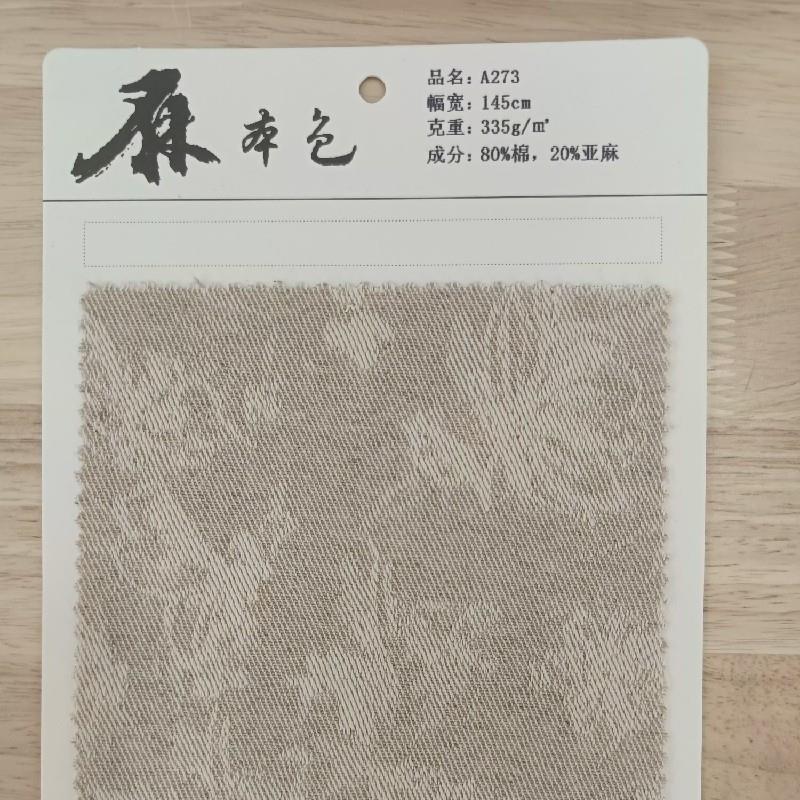 麻本色
品名：A273
幅宽：145cm
克重：335g/㎡
成分：80%棉，20%亚麻